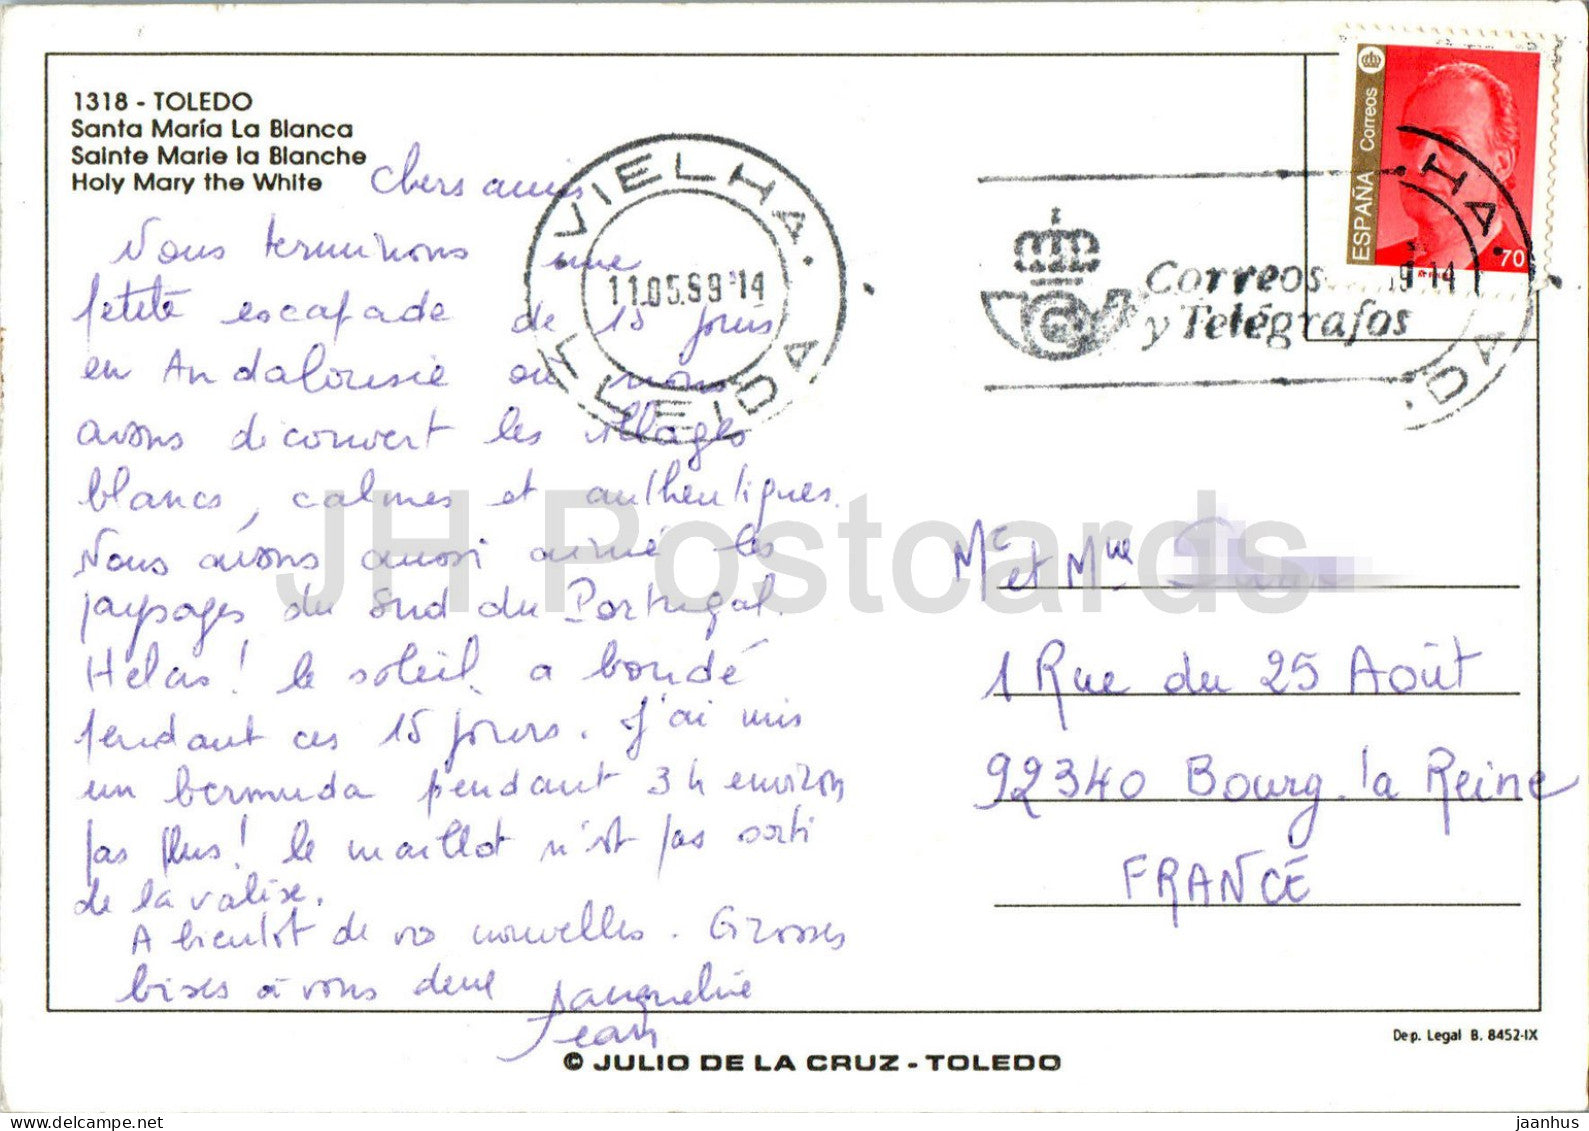 1318 - TOLEDO
Santa María La Blanca
Sainte Marie la Blanche
Holy Mary the White
Chers amis
Nous terminons une
petite escapade de 15 jours
en Andalousie où nous
avons découvert les villages
blancs, calmes et authentiques.
Nous avons aussi aimé les
paysages du Sud du Portugal.
Hélas! le soleil a boudé
pendant ces 15 jours. J'ai mis
un bermuda pendant 3 h environ
pas plus! le maillot n'est pas sorti
de la valise.
A bientôt de vos nouvelles. Grosses
bises à vous deux Jacqueline
Jean
VIELHA
11.05.99 14
LLEIDA
Correos
y Telégrafos
ESPAÑA Correos
70
HA
9 14
DA
Mr et Mme
1 Rue du 25 Août
92340 Bourg la Reine
FRANCE
Dep. Legal B. 8452-IX
© JULIO DE LA CRUZ - TOLEDO
JH Postcards
jaanhus
delcampe.net